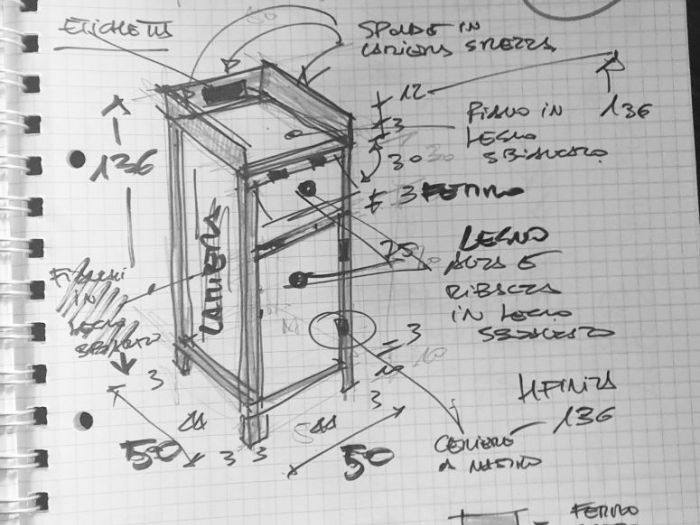 ETICHETTA
SPONDE IN
LAMIERA GREZZA
12
136
3
PIANO IN
LEGNO
SBIANCATO
136
30
3 FERMO
LEGNO
25
ANTA E
RIBALTA
IN LEGNO
SBIANCATO
LAMIERA
IN
LEGNO
SBIANCATO
3
3
10
H FINITA
136
3
44
44
50
3 3
50
CERNIERE
A NASTRO
FERRO